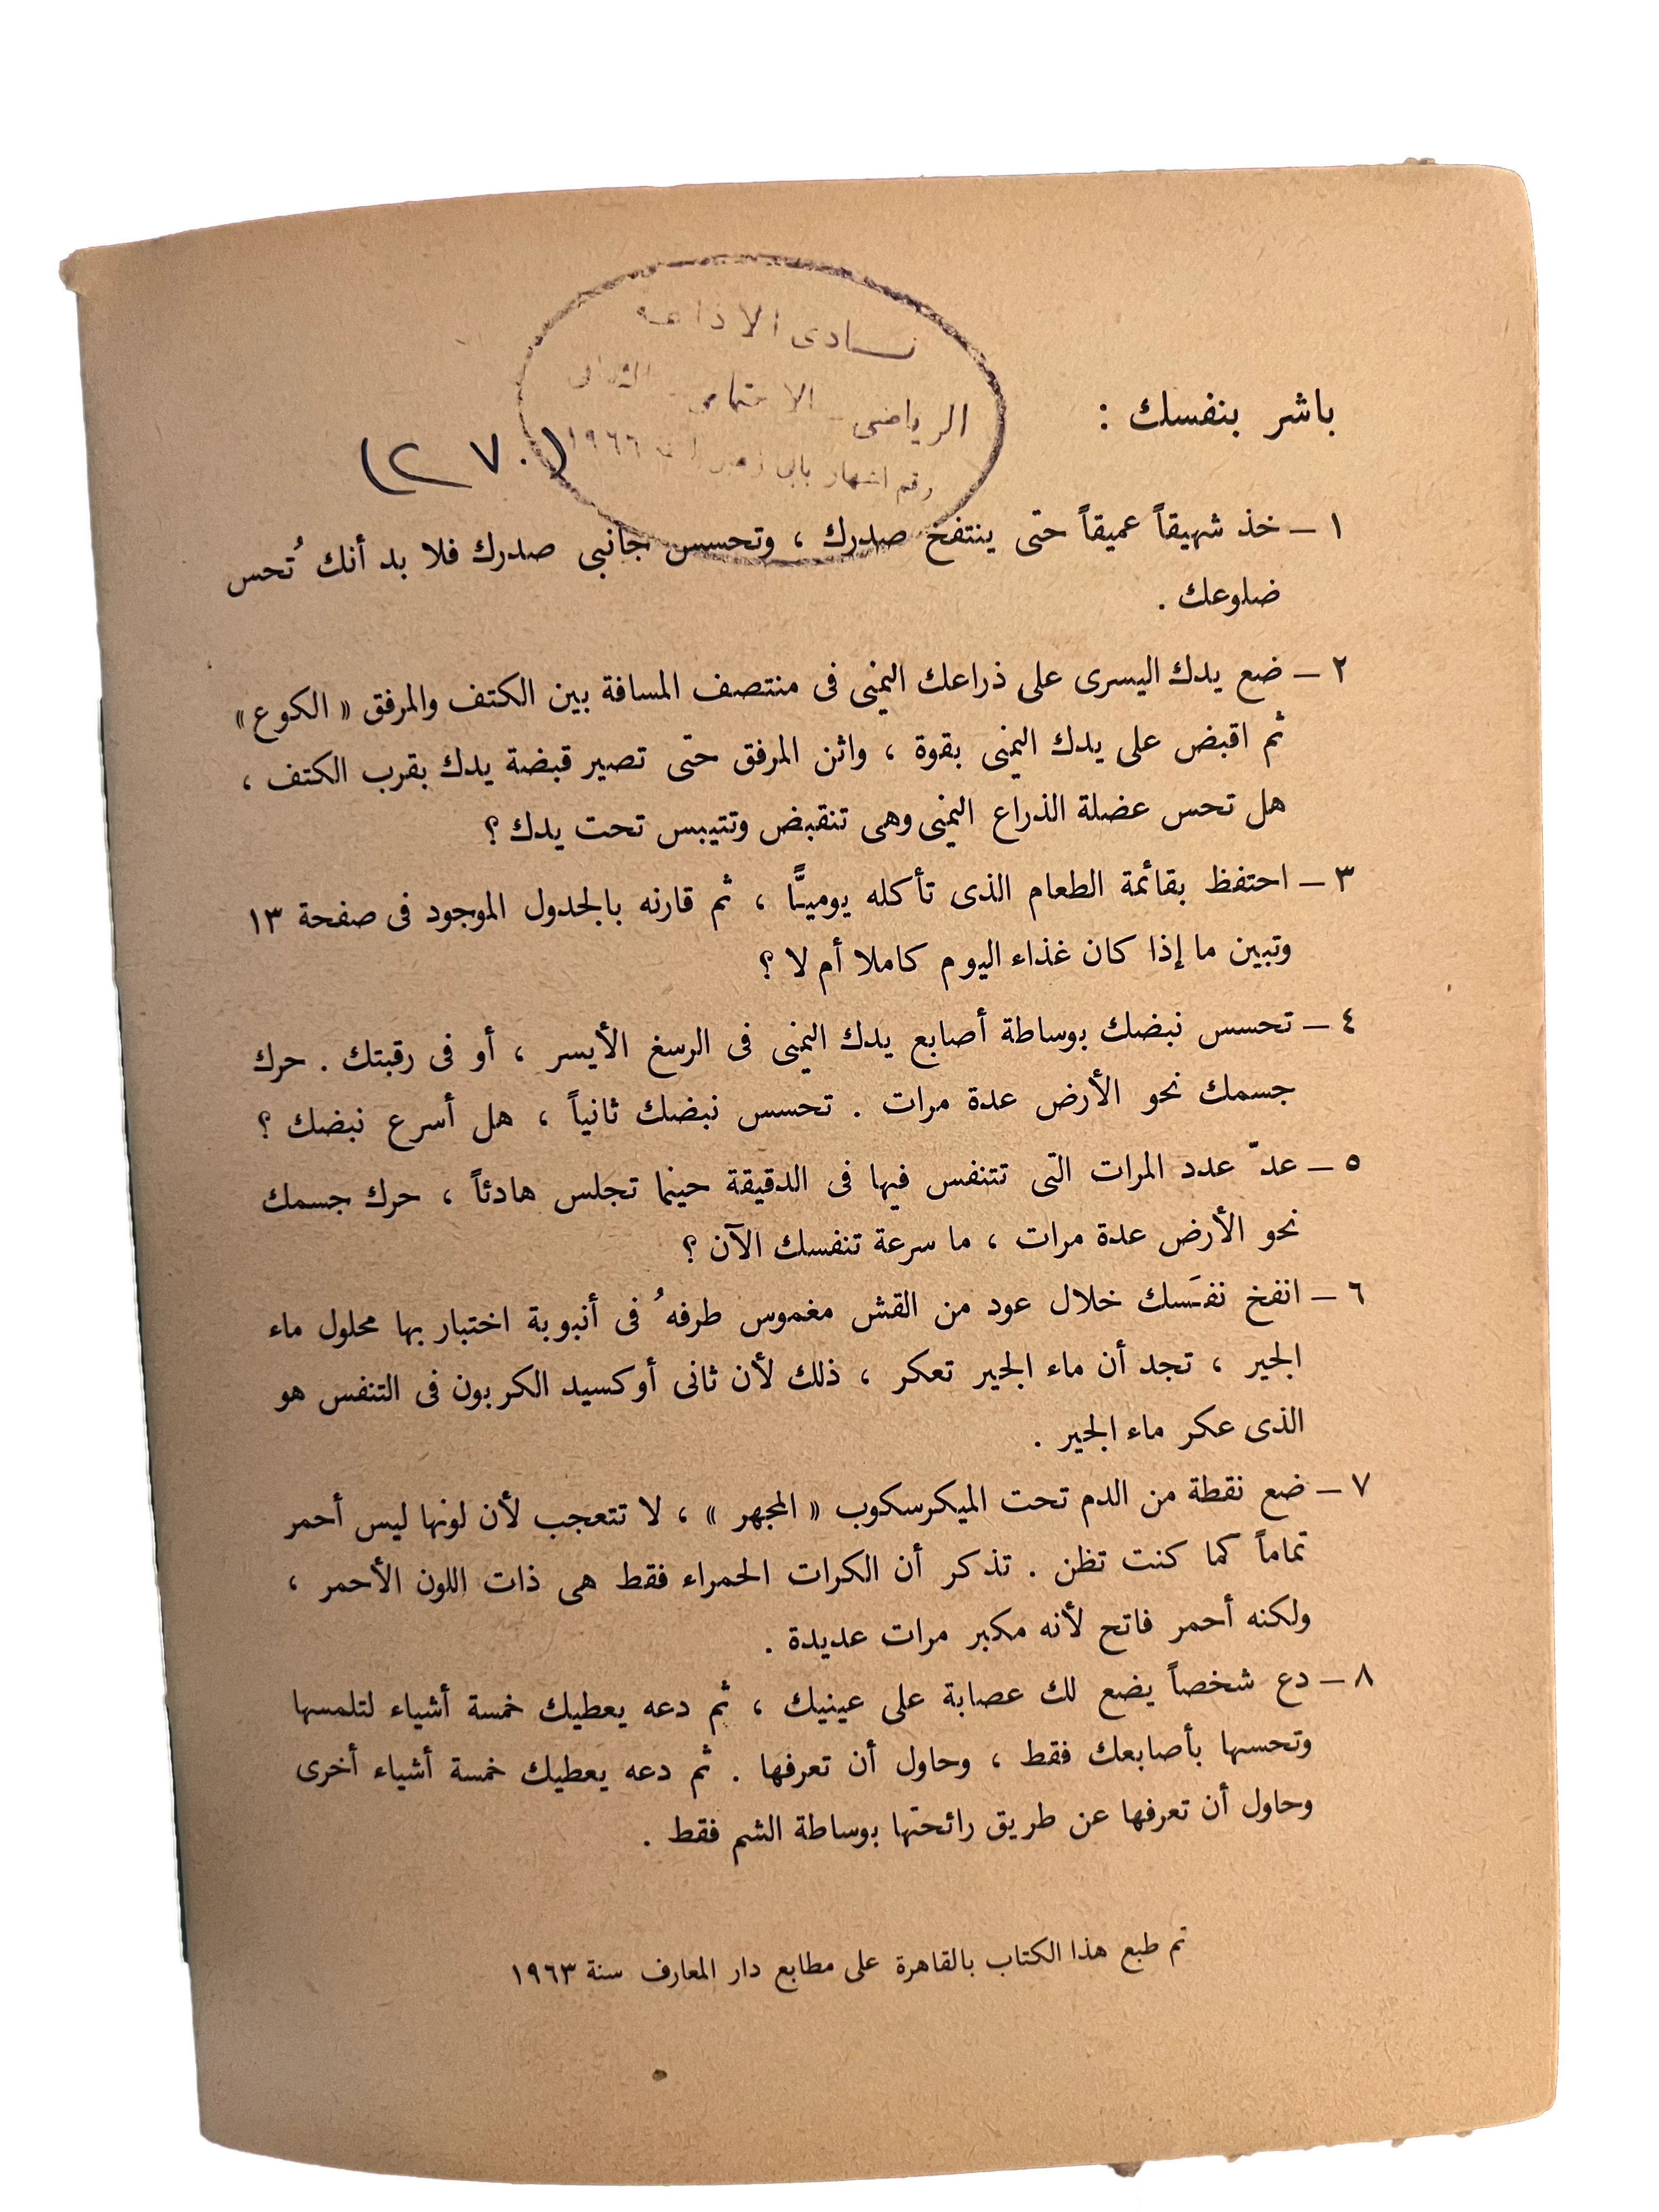 نادى الاذاعة
الرياضى - الاجتماعى - الثقافى
رقم اشهار ١٩٦٦
باشر بنفسك :
(٢٧٠)
١ – خذ شهيقاً عميقاً حتى ينتفخ صدرك ، وتحسس جانبى صدرك فلا بد أنك تُحس
ضلوعك .
٢ – ضع يدك اليسرى على ذراعك اليمنى فى منتصف المسافة بين الكتف والمرفق « الكوع »
ثم اقبض على يدك اليمنى بقوة ، واثن المرفق حتى تصير قبضة يدك بقرب الكتف ،
هل تحس عضلة الذراع اليمنى وهى تنقبض وتتيبس تحت يدك ؟
٣ – احتفظ بقائمة الطعام الذى تأكله يوميًّا ، ثم قارنه بالجدول الموجود فى صفحة ١٣
وتبين ما إذا كان غذاء اليوم كاملا أم لا ؟
٤ – تحسس نبضك بوساطة أصابع يدك اليمنى فى الرسغ الأيسر ، أو فى رقبتك . حرك
جسمك نحو الأرض عدة مرات . تحسس نبضك ثانياً ، هل أسرع نبضك ؟
٥ – عدّ عدد المرات التى تتنفس فيها فى الدقيقة حينما تجلس هادئاً ، حرك جسمك
نحو الأرض عدة مرات ، ما سرعة تنفسك الآن ؟
٦ – انفخ نفَسك خلال عود من القش مغموس طرفهُ فى أنبوبة اختبار بها محلول ماء
الجير ، تجد أن ماء الجير تعكر ، ذلك لأن ثانى أوكسيد الكربون فى التنفس هو
الذى عكر ماء الجير .
٧ – ضع نقطة من الدم تحت الميكرسكوب « المجهر » ، لا تتعجب لأن لونها ليس أحمر
تماماً كما كنت تظن . تذكر أن الكرات الحمراء فقط هى ذات اللون الأحمر ،
ولكنه أحمر فاتح لأنه مكبر مرات عديدة .
٨ – دع شخصاً يضع لك عصابة على عينيك ، ثم دعه يعطيك خمسة أشياء لتلمسها
وتحسها بأصابعك فقط ، وحاول أن تعرفها . ثم دعه يعطيك خمسة أشياء أخرى
وحاول أن تعرفها عن طريق رائحتها بوساطة الشم فقط .
تم طبع هذا الكتاب بالقاهرة على مطابع دار المعارف سنة ١٩٦٣